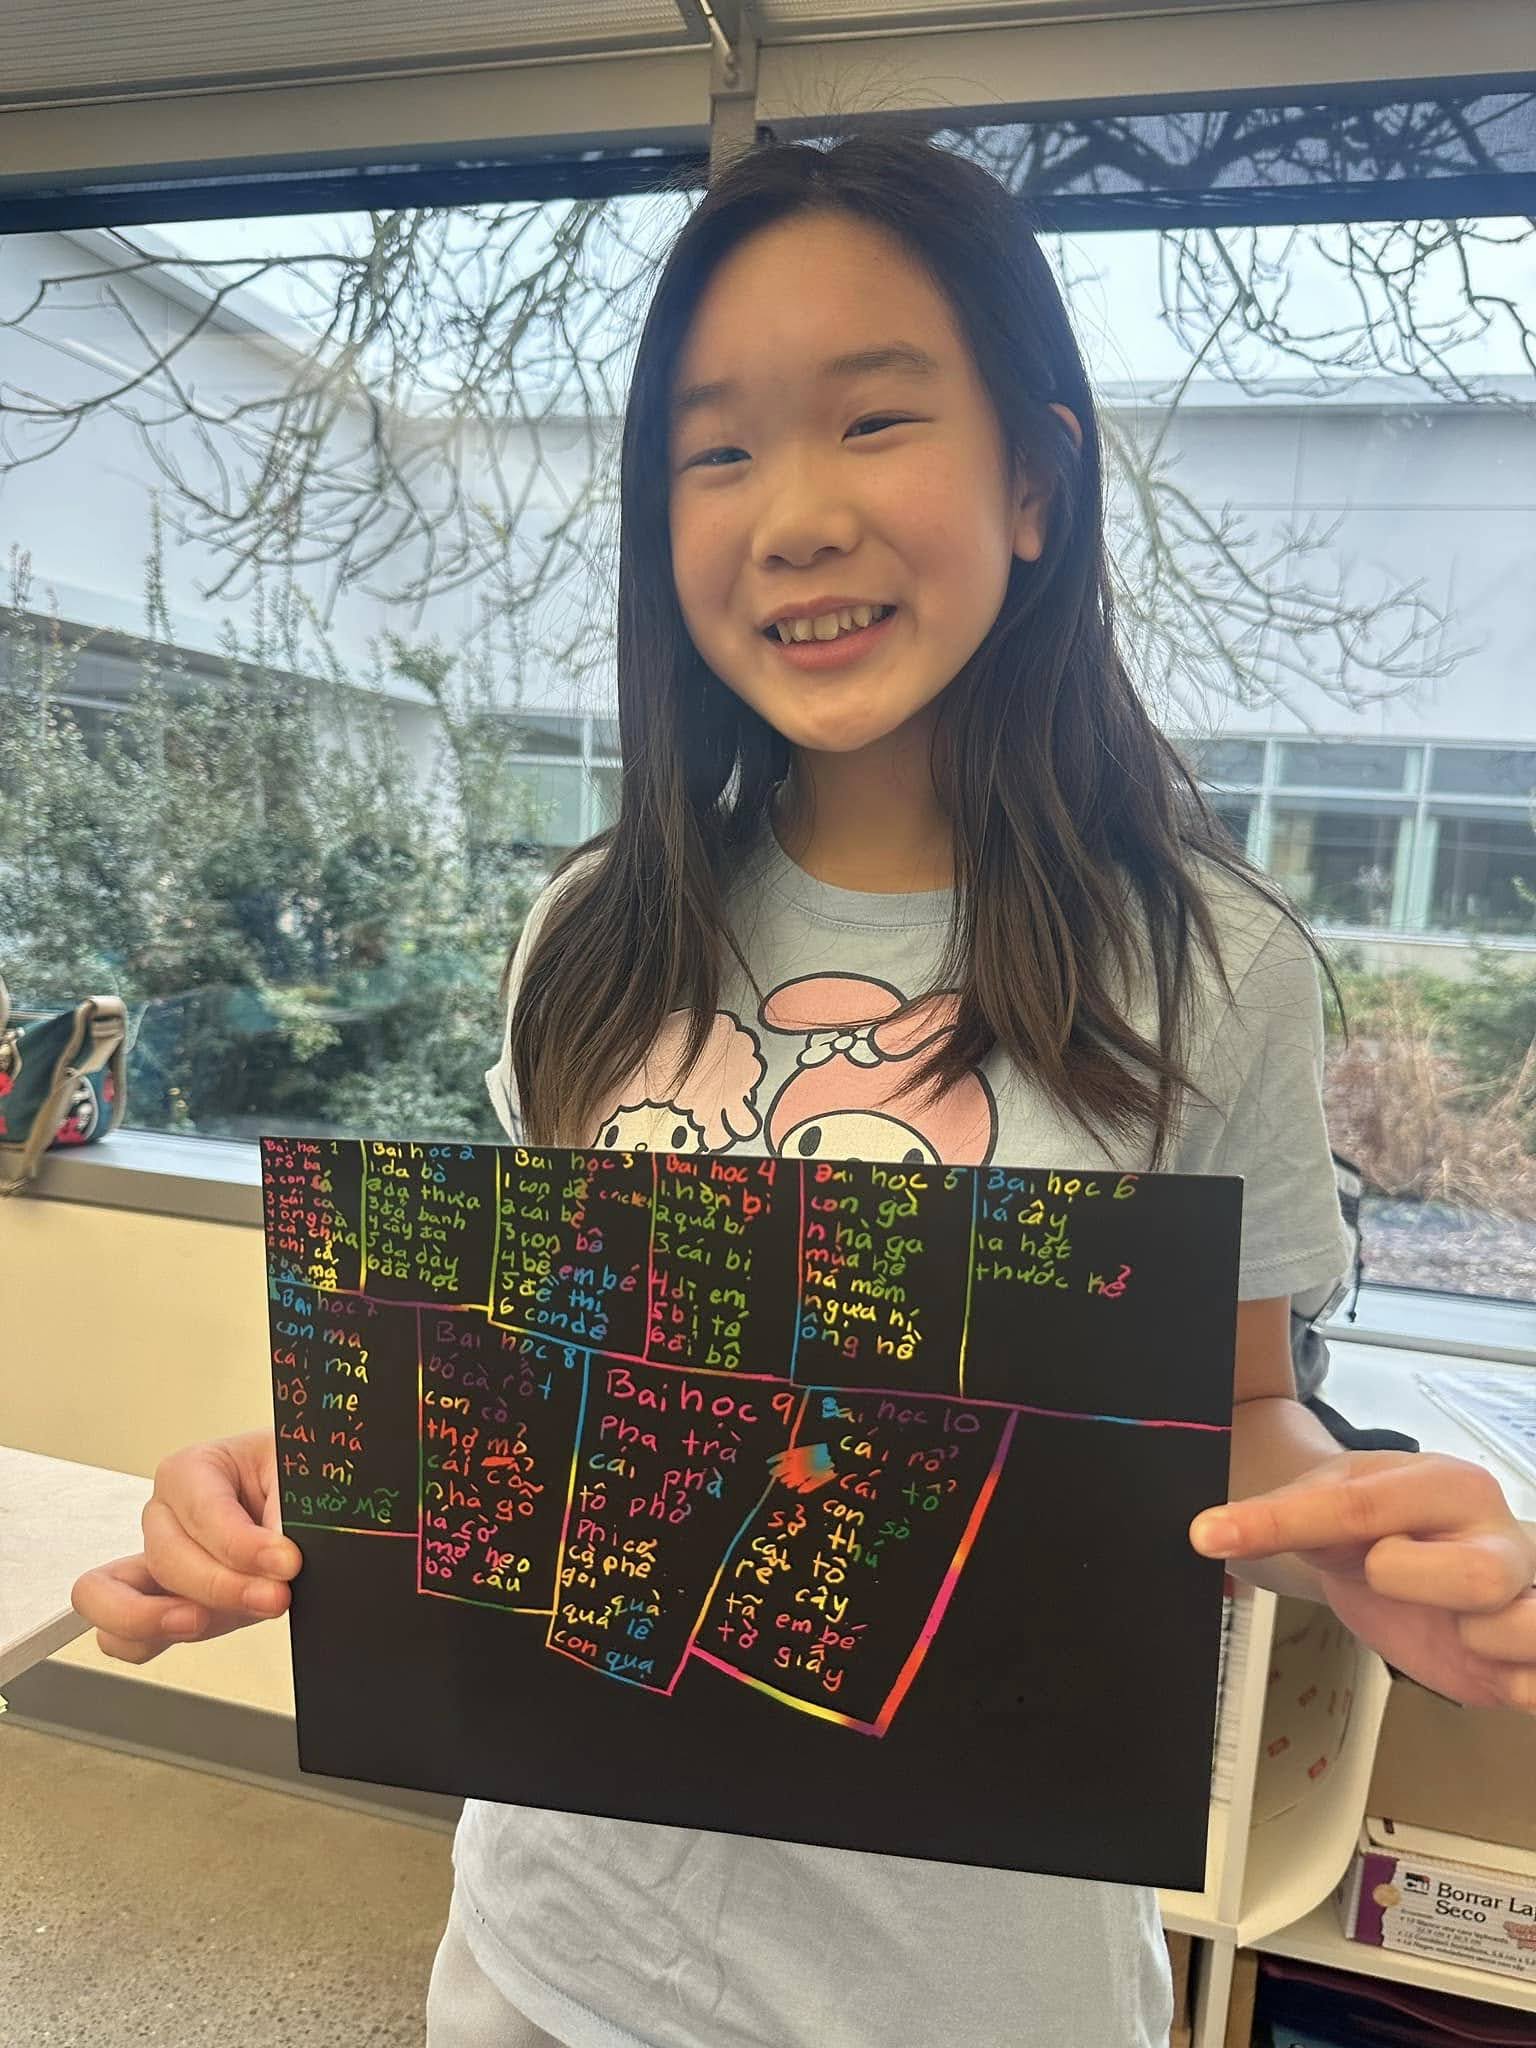 Bai học 1
1 số ba
2 con cá
3 cái ca
4 ông bà
5 cà chua
6 chị cả
7 ba má
Bai học 2
1. da bò
2 dạ thưa
3 đá banh
4 cây đa
5 dạ dày
6 đã học
Bai học 3
1 con dế cricket
2 cái bè
3 con bê
4 bế em bé
5 đề thi
6 con dê
Bai hoc 4
1. hòn bi
2 quả bí
3. cái bị
4. dì em
5 bị té
6. đi bô
Bai học 5
con gà
nhà ga
mùa hè
há mồm
ngựa hí
ông nề
Bai học 6
lá cây
la hét
thước kẻ
Bai học 7
con ma
cái mả
bố mẹ
cái ná
tô mì
người Mễ
Bai học 8
bó cà rốt
con cò
thợ mỏ
cái cổ
nhà gỗ
lá cờ
mỡ heo
bồ câu
Bai học 9
Pha trà
cái phà
tô phở
Phi cơ
cà phê
gói quà
quả lê
con quạ
Bai học 10
cái rổ
cái tổ
con sò
sở thú
cái tô
rễ cây
tã em bé
tờ giấy
Borrar
Seco